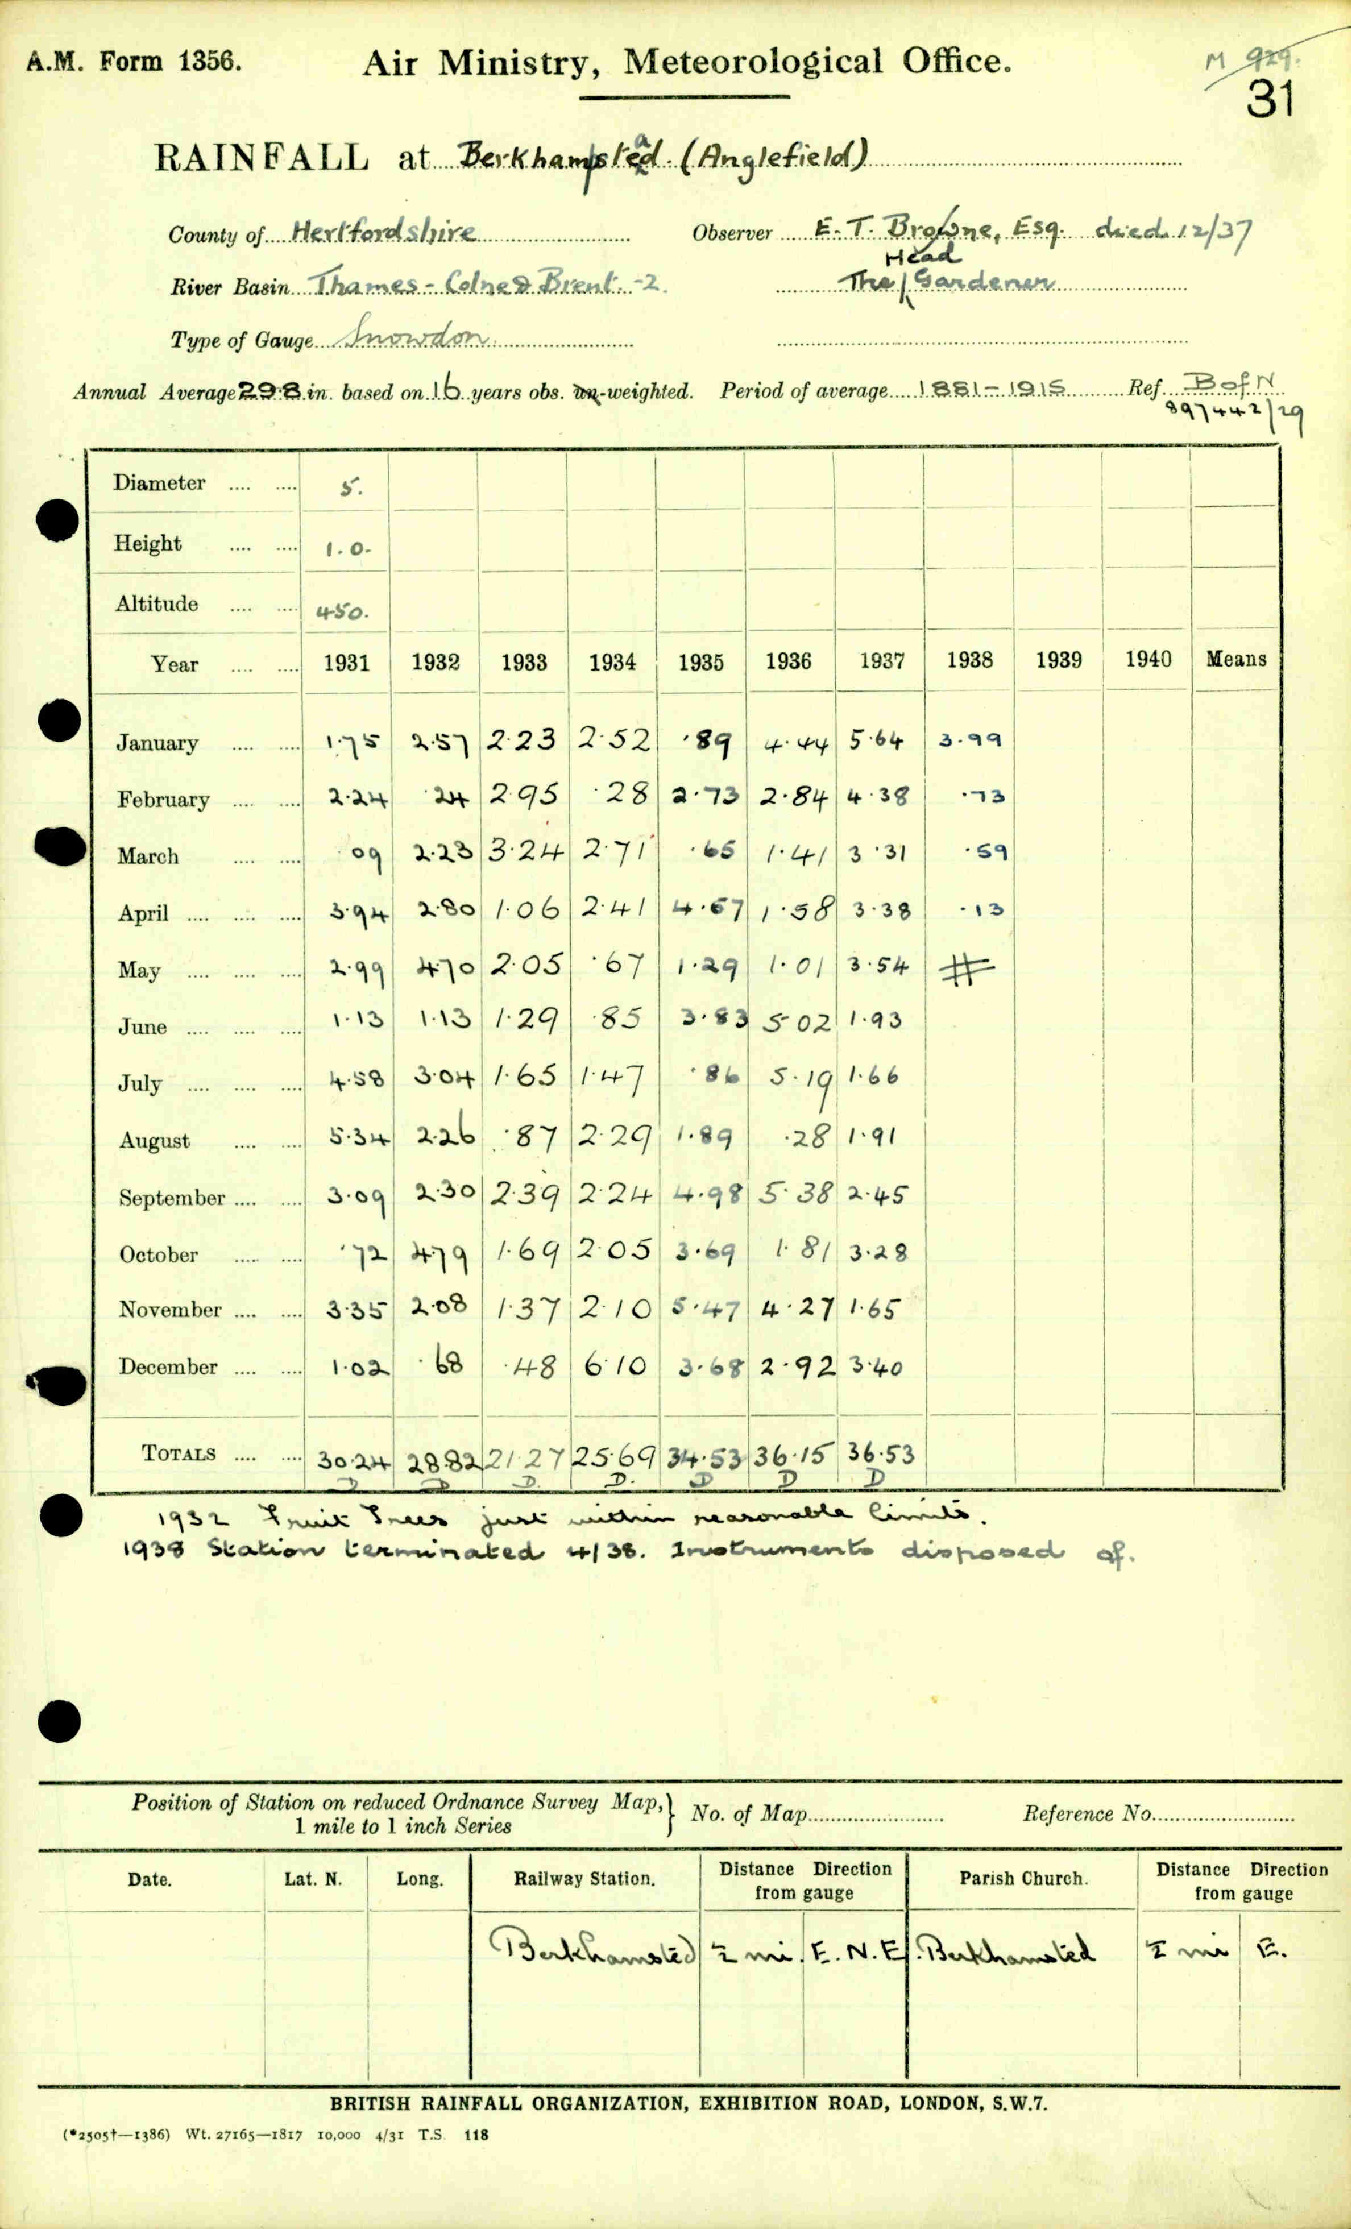 A.M. Form 1356.
Air Ministry, Meteorological Office.
M 929.
31
RAINFALL at Berkhamsted. (Anglefield)
County of Hertfordshire
Observer E. T. Browne, Esq. died 12/37
River Basin Thames - Colne & Brent. -2.
The Head Gardener
Type of Gauge Snowdon
Annual Average 29.8 in. based on 16 years obs. un-weighted. Period of average 1881-1915 Ref. B of N
897442/29
Diameter .... .... 5.
Height .... .... 1.0.
Altitude .... .... 450.
Year .... .... 1931 1932 1933 1934 1935 1936 1937 1938 1939 1940 Means
January .... .... 1.75 2.57 2.23 2.52 .89 4.44 5.64 3.99
February .... .... 2.24 .24 2.95 .28 2.73 2.84 4.38 .73
March .... .... 09 2.23 3.24 2.71 .65 1.41 3.31 .59
April .... .... .... 3.94 2.80 1.06 2.41 4.67 1.58 3.38 .13
May .... .... .... 2.99 4.70 2.05 .67 1.29 1.01 3.54 #
June .... .... .... 1.13 1.13 1.29 .85 3.83 5.02 1.93
July .... .... .... 4.58 3.04 1.65 1.47 .86 5.19 1.66
August .... .... 5.34 2.26 .87 2.29 1.89 .28 1.91
September .... .... 3.09 2.30 2.39 2.24 4.98 5.38 2.45
October .... .... .72 4.79 1.69 2.05 3.69 1.81 3.28
November .... .... 3.35 2.08 1.37 2.10 5.47 4.27 1.65
December .... .... 1.02 .68 .48 6.10 3.68 2.92 3.40
TOTALS .... .... 30.24 28.82 21.27 25.69 34.53 36.15 36.53
D D D. D. D D D
1932 Fruit Trees just within reasonable limits.
1938 Station terminated 4/38. Instruments disposed of.
Position of Station on reduced Ordnance Survey Map, } No. of Map Reference No.
1 mile to 1 inch Series
Date. Lat. N. Long. Railway Station. Distance Direction Parish Church. Distance Direction
from gauge from gauge
Berkhamsted ½ mi. E.N.E. Berkhamsted ½ mi E.
BRITISH RAINFALL ORGANIZATION, EXHIBITION ROAD, LONDON, S.W.7.
(*2505†—1386) Wt. 27165—1817 10,000 4/31 T.S. 118